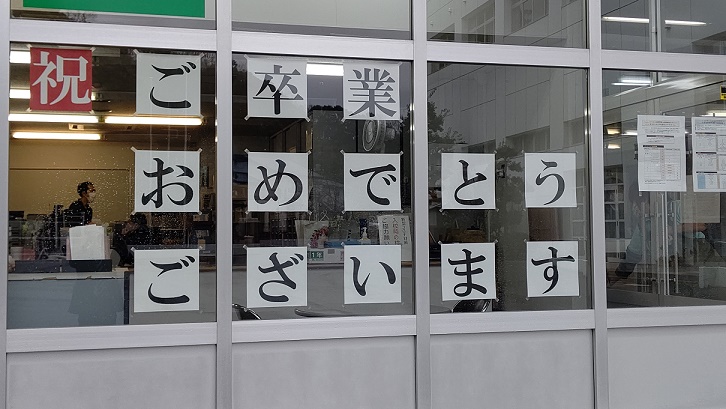 祝 ご卒業
おめでとう
ございます